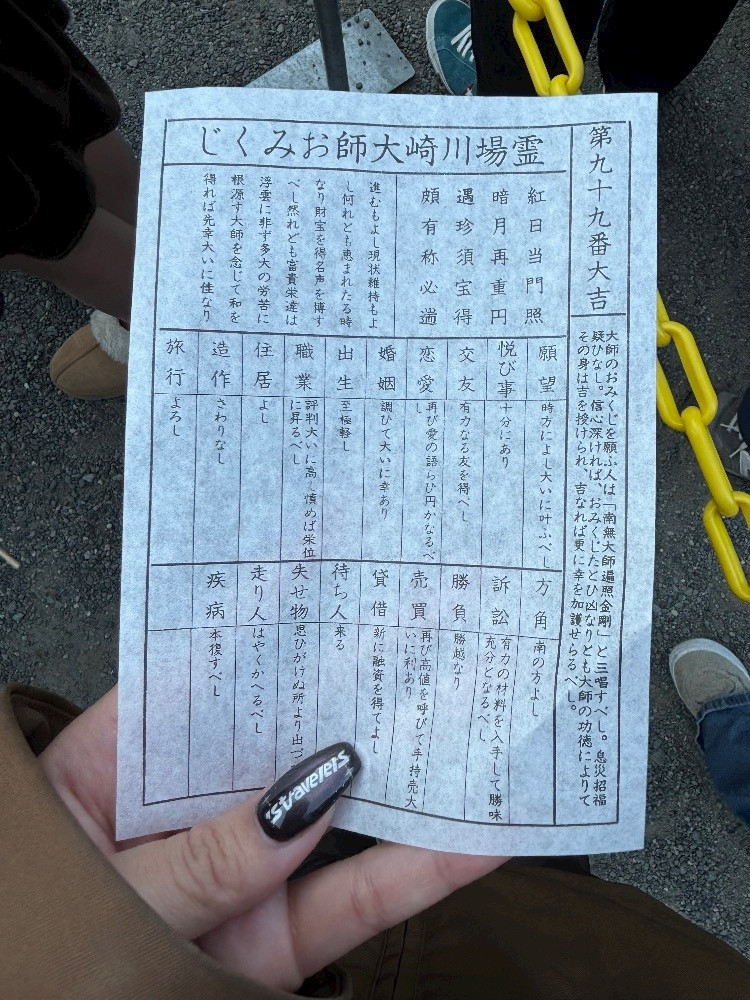 霊場川崎大師おみくじ
第九十九番大吉
大師のおみくじを願ふ人は「南無大師遍照金剛」と三唱すべし。息災招福
疑ひなし。信心深ければ、おみくじたとひ凶なりとも大師の功徳によりて
その身は吉を授けられ、吉なれば更に幸を加護せらるべし。
紅日当門照
暗月再重円
遇珍須宝得
頗有称必遄
進むもよし現状維持もよ
し何れとも恵まれたる時
なり財宝を得名声を博す
べし然れども富貴栄達は
浮雲に非ず多大の労苦に
根源す大師を念じて和を
得れば先幸大いに佳なり
願望
時方によし大いに叶ふべし
悦び事
十分にあり
交友
有力なる友を得べし
恋愛
再び愛の語らひ円かなるべ
し
婚姻
調ひて大いに幸あり
出生
至極軽し
職業
評判大いに高し慎めば栄位
に昇るべし
住居
よし
造作
さわりなし
旅行
よろし
方角
南の方よし
訴訟
有力の材料を入手して勝味
充分となるべし
勝負
勝越なり
売買
再び高値を呼びて手持売大
いに利あり
貸借
新に融資を得てよし
待ち人
来る
失せ物
思ひがけぬ所より出づ
走り人
はやくかへるべし
疾病
本復すべし
Stravelets